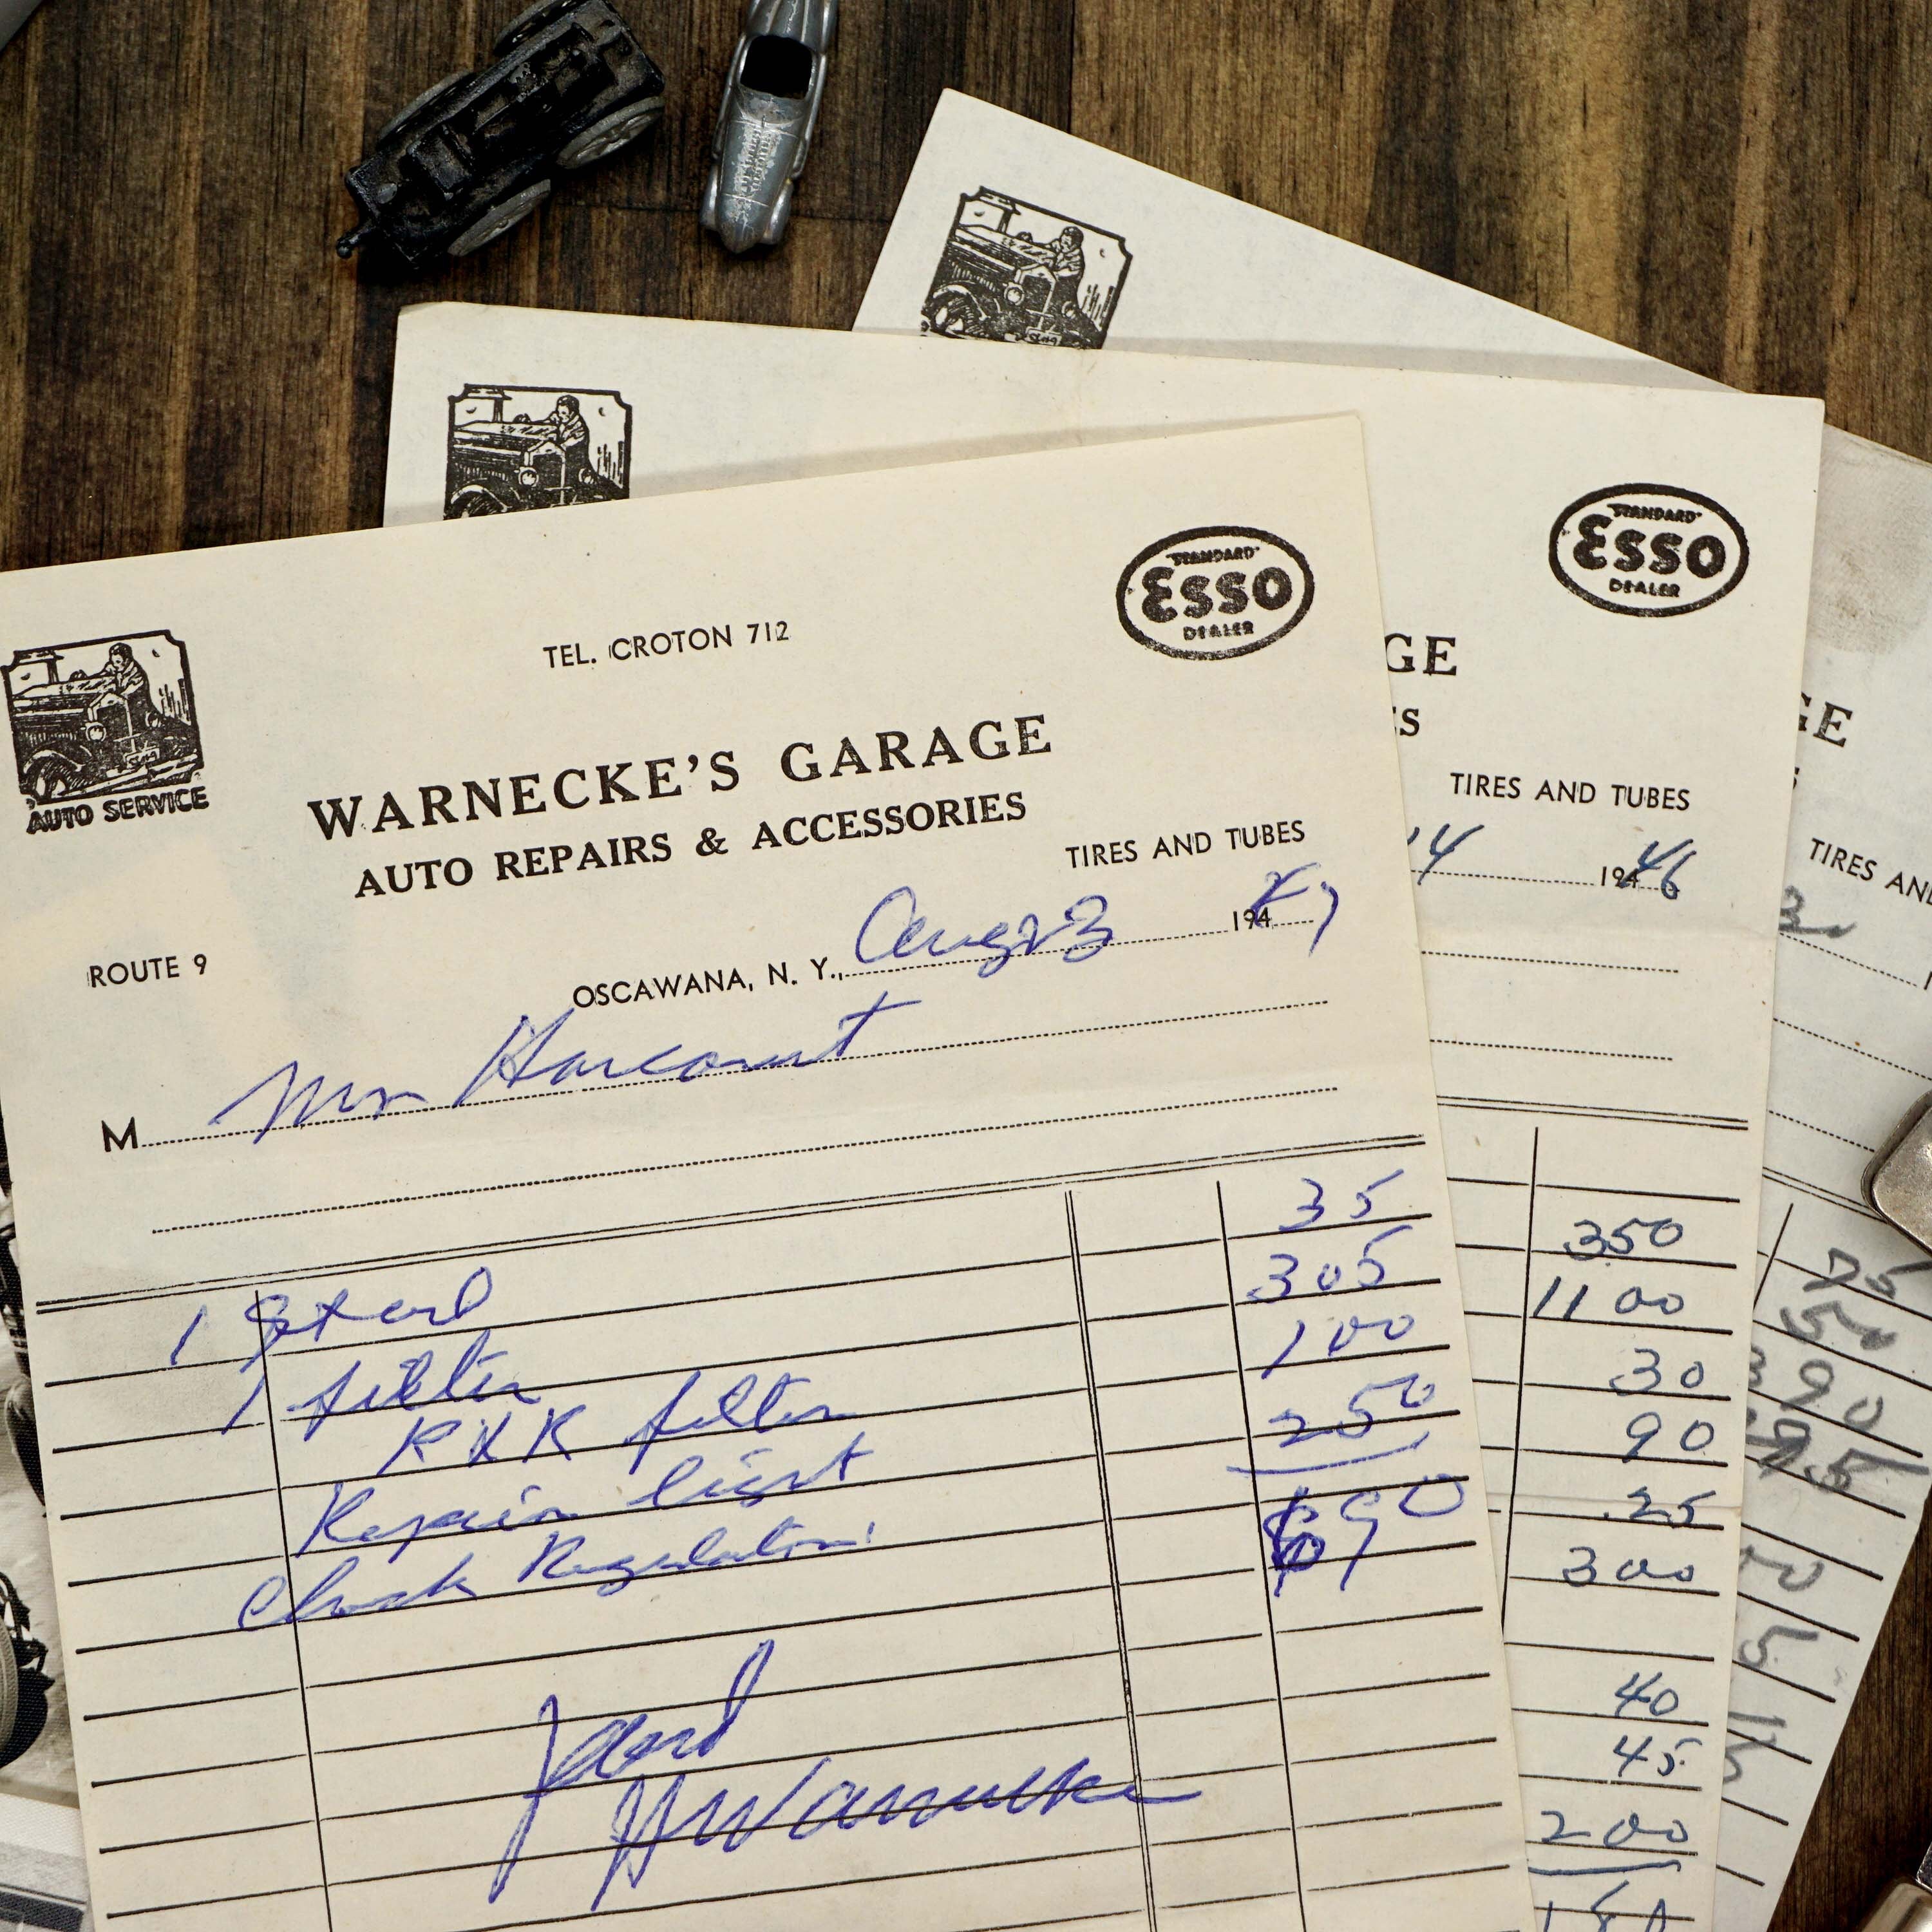 STANDARD
ESSO
DEALER
TEL. CROTON 712
WARNECKE'S GARAGE
AUTO REPAIRS & ACCESSORIES
AUTO SERVICE
TIRES AND TUBES
ROUTE 9
OSCAWANA, N. Y., Aug 23 1947
M Mr Harcourt
35
1 filter 305
R & R filter 100
Repair light
Check Regulator 250
$6 90
Paid
HWarnecke
STANDARD
ESSO
DEALER
GE
ES
TIRES AND TUBES
14 1946
350
11 00
30
90
.25
300
40
45
200
GE
TIRES AN
75
50
3 90